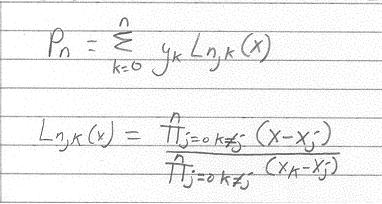 Pn = n∑k=0 yk Ln,k(x)
Ln,k(x) = n∏j=0 k≠j (x-xj)
n∏j=0 k≠j (xk-xj)